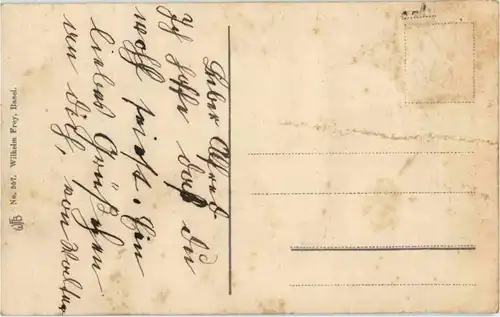 Lieber
Ich hoffe daß du
wohl seist. Ein
liebes Grüßchen
an Dich, von Walter
No. 557. Wilhelm Frey, Basel.